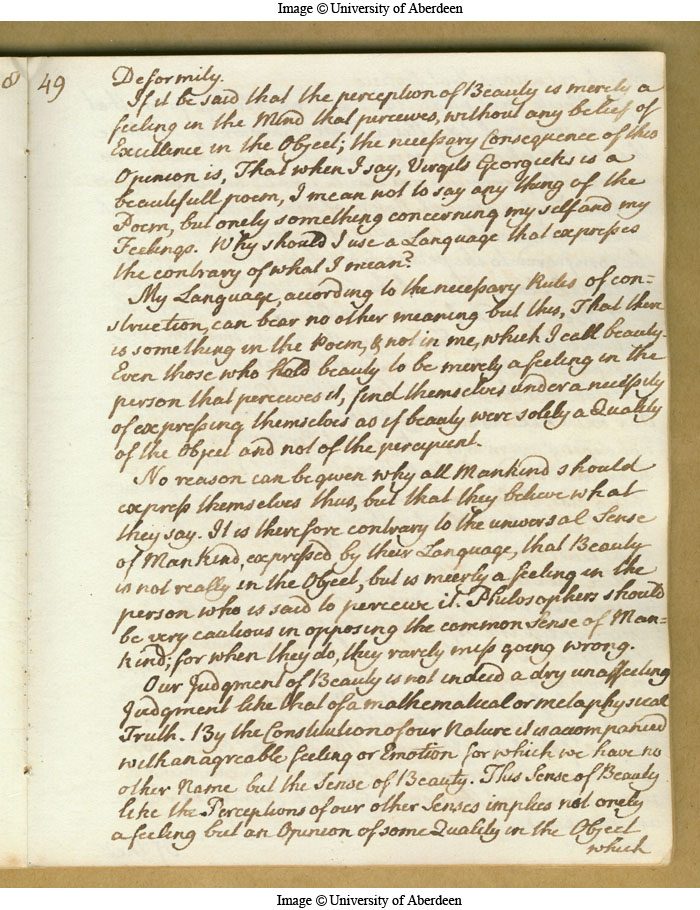 Image © University of Aberdeen
8
49
Deformity.
If it be said that the perception of Beauty is merely a
feeling in the Mind that perceives, without any belief of
Excellence in the Object; the necessary Consequence of this
Opinion is, That when I say, Virgils Georgicks is a
beautifull poem, I mean not to say any thing of the
Poem, but onely something concerning my self and my
Feelings. Why should I use a Language that expresses
the contrary of what I mean?
My Language, according to the necessary Rules of con=
struction, can bear no other meaning but this, That there
is something in the Poem, & not in me, which I call beauty.
Even those who hold beauty to be merely a feeling in the
person that perceives it, find themselves under a necessity
of expressing themselves as if beauty were solely a Quality
of the Object and not of the percipient.
No reason can be given why all Mankind should
express themselves thus, but that they believe what
they say. It is therefore contrary to the universal Sense
of Mankind, expressed by their Language, that Beauty
is not really in the Object, but is meerly a feeling in the
person who is said to perceive it. Philosophers should
be very cautious in opposing the common Sense of Man=
kind; for when they do, they rarely miss going wrong.
Our Judgment of Beauty is not indeed a dry unaffecting
Judgment like that of a mathematical or metaphysical
Truth. By the Constitution of our Nature it is accompanied
with an agreable feeling or Emotion for which we have no
other Name but the Sense of Beauty. This Sense of Beauty
like the Perceptions of our other Senses implies not onely
a feeling but an Opinion of some Quality in the Object
which
Image © University of Aberdeen